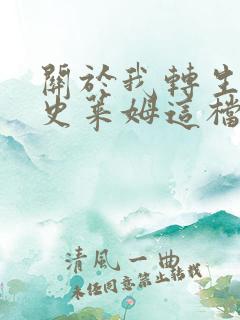 關於我轉生
史萊姆這檔
清風一曲
未經同意禁止轉載